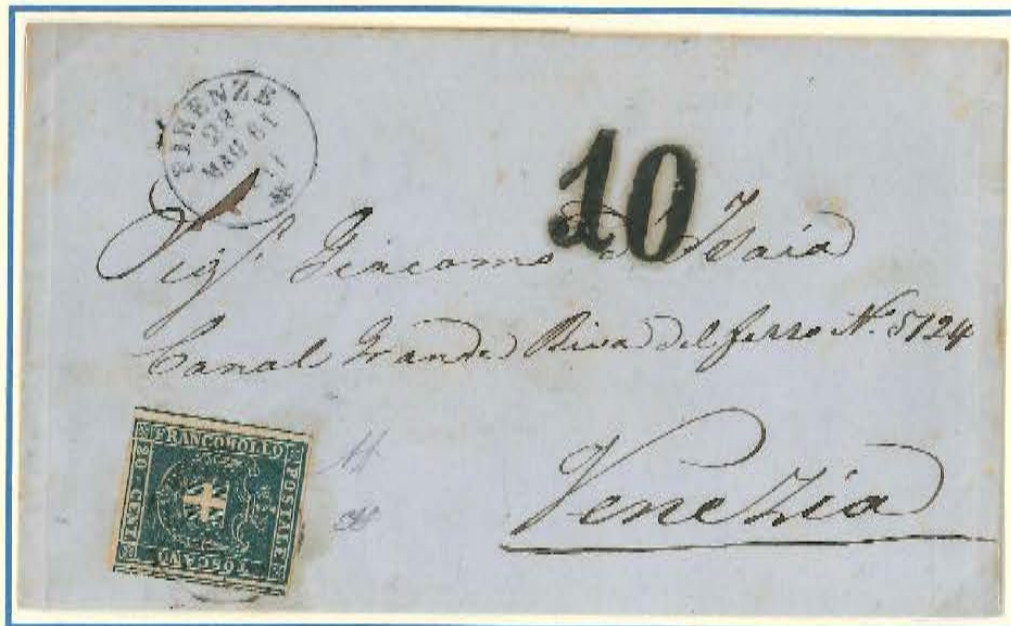 FIRENZE
28
MAG 61
10
Sigr. Giacomo d' Isaia
Canal Grande Riva del ferro No. 5724
Venezia
FRANCOBOLLO
POSTALE
TOSCANO
20 CENT